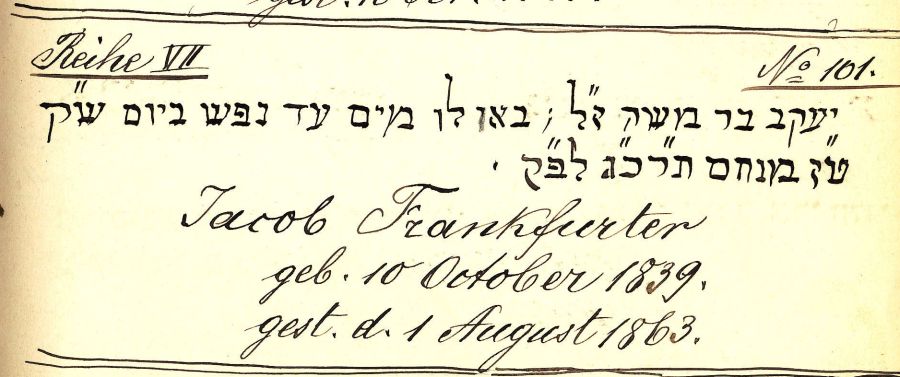 Reihe VII
No 101.
יעקב בר משה ז״ל ; באו לו מים עד נפש ביום ש״ק
ט״ז במנחם ת״רכ״ג לפ״ק .
Jacob Frankfurter
geb. 10 October 1839.
gest. d. 1 August 1863.